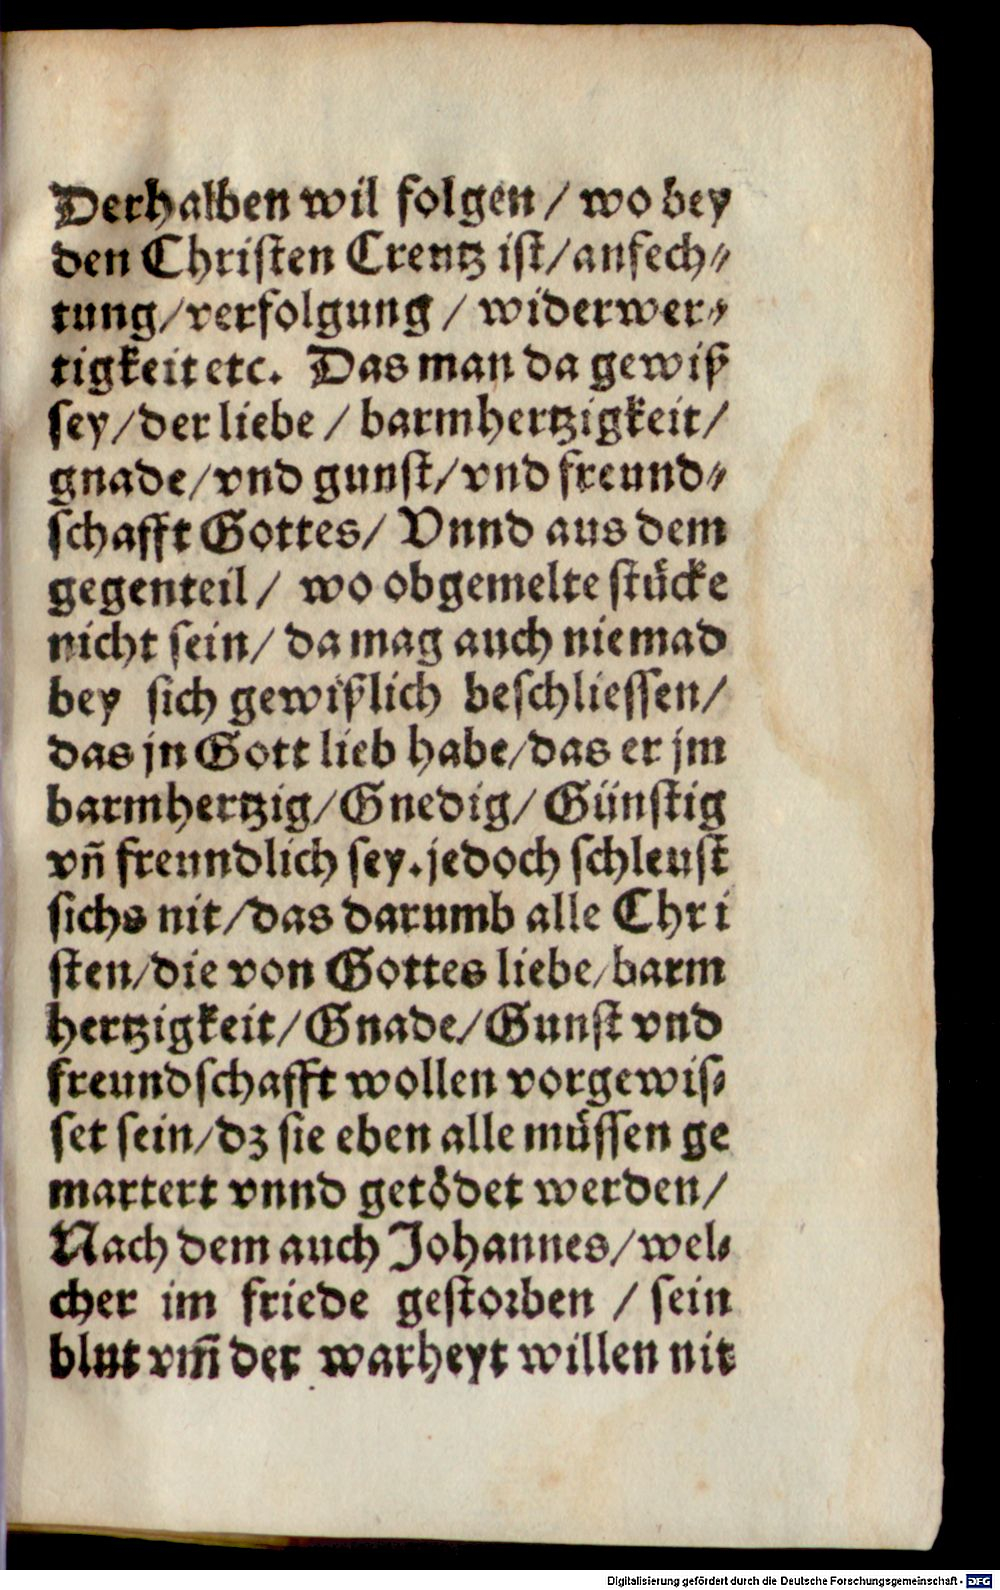 Derhalben wil folgen / wo bey
den Christen Creutz ist/anfech⸗
tung/verfolgung / widerwer⸗
tigkeit etc. Das man da gewiß
sey/der liebe / barmhertzigkeit/
gnade/vnd gunst/vnd freund⸗
schafft Gottes/ Vnnd aus dem
gegenteil / wo obgemelte stücke
nicht sein/ da mag auch niemad
bey sich gewißlich beschliessen/
das jn Gott lieb habe/das er jm
barmhertzig/Gnedig/ Günstig
vñ freundlich sey. jedoch schleust
sichs nit/das darumb alle Chri
sten/die von Gottes liebe/barm
hertzigkeit/Gnade/Gunst vnd
freundschafft wollen vorgewis⸗
set sein/dz sie eben alle müssen ge
martert vnnd getödet werden/
Nach dem auch Johannes/wel⸗
cher im friede gestorben / sein
blut vm̃ der warheyt willen nit
Digitalisierung gefördert durch die Deutsche Forschungsgemeinschaft - DFG